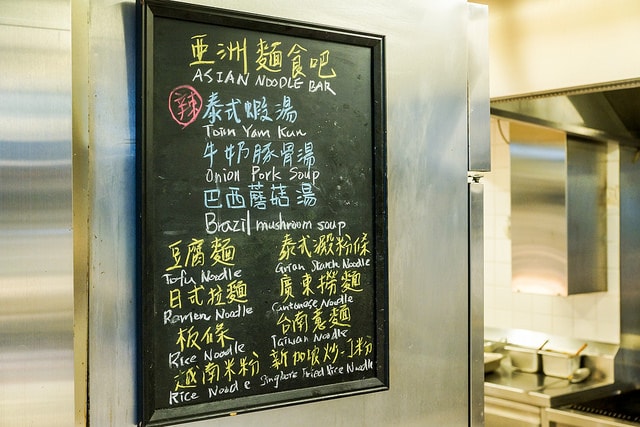 亞洲麵食吧
ASIAN NOODLE BAR
辣 泰式蝦湯
Tom Yam Kun
牛奶豚骨湯
Onion Pork Soup
巴西蘑菇湯
Brazil mushroom soup
豆腐麵
Tofu Noodle
日式拉麵
Ramen Noodle
板條
Rice Noodle
越南米粉
Rice Noodle
泰式澱粉條
Grian Starch Noodle
廣東撈麵
Cantonese Noodle
台南意麵
Taiwan Noodle
新加坡炒米粉
Singbore Fried Rice Noodle